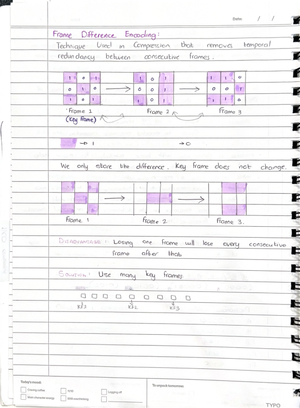 Date: / /
Frame Difference Encoding:
Technique Used in Compression that removes temporal
redundancy between consecutive frames.
1 0 1 1 0 1 1 1 0
0 1 0 0 0
1 0 1 1 0 1 1 0
Frame 1 Frame 2 Frame 3
(Key frame)
→ 1 → 0
We only store the difference. Key frame does not change.
Frame 1 Frame 2 Frame 3.
Disadvantage: Losing one frame will lose every consecutive
frame after that.
Solution: Use many key frames
Today's mood:
To unpack tomorrow:
TYPO